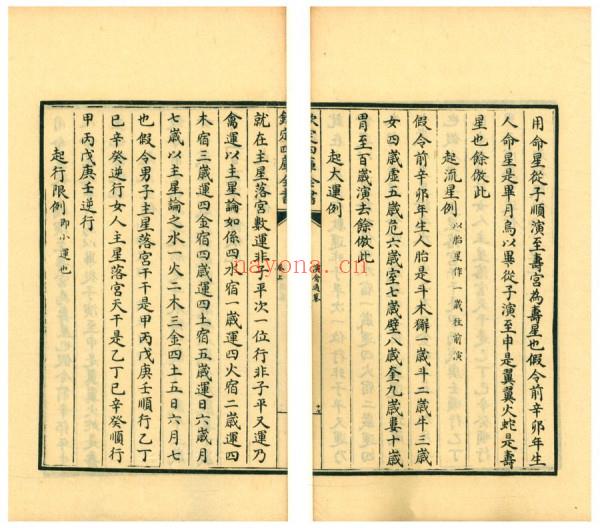 用命星從子順演至壽宮為壽星也假令前辛卯年生
人命星是畢月烏以畢從子演至申是翼翼火蛇是壽
星也餘倣此
起流星例以胎星作一歲往前演
假令前辛卯年生人胎是斗木獬一歲斗二歲牛三歲
女四歲虛五歲危六歲室七歲壁八歲奎九歲婁十歲
胃至百歲演去餘倣此
起大運例
欽定四庫全書
卷上
就在主星落宮數運非子平次一位行非子平又運乃
禽運以主星論如係四水宿一歲運四火宿二歲運四
木宿三歲運四金宿四歲運四土宿五歲運日六歲月
七歲以主星論之水一火二木三金四土五日六月七
也假令男子主星落宮干是甲丙戊庚壬順行乙丁
己辛癸逆行女人主星落宮天干是乙丁己辛癸順行
甲丙戊庚壬逆行
起行限例即小運也
nayona.cn